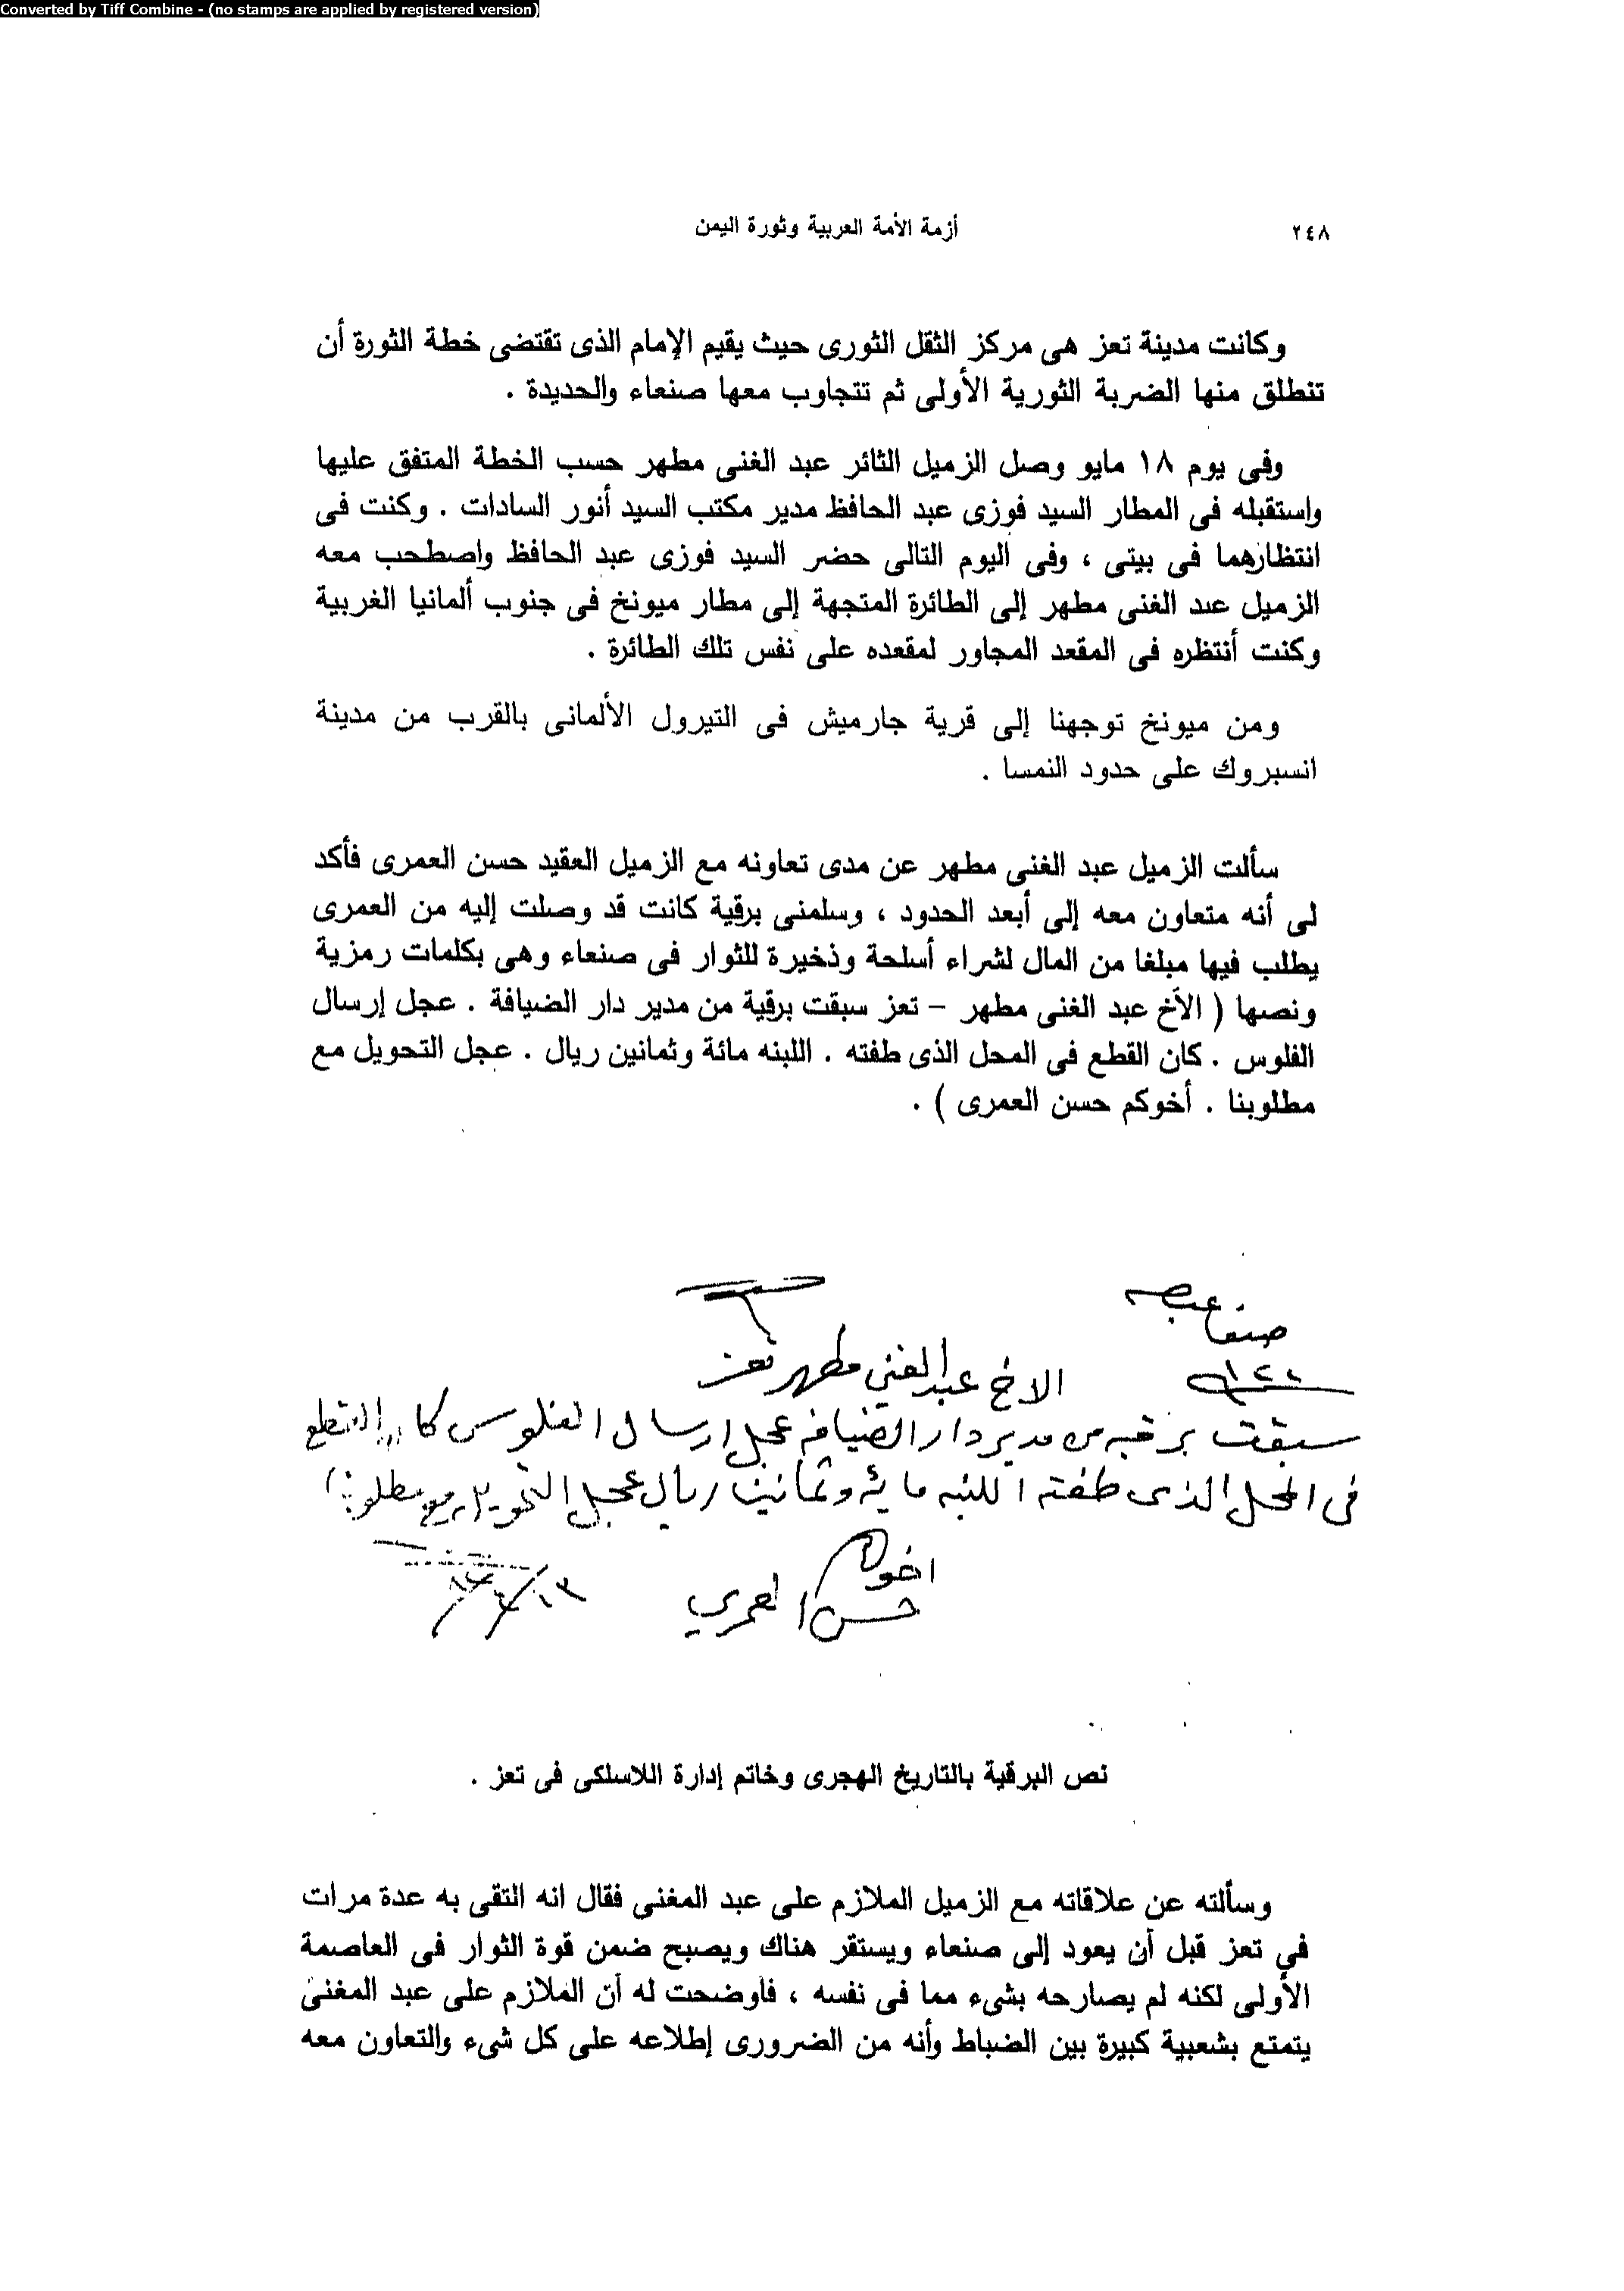 Converted by Tiff Combine - (no stamps are applied by registered version)
٢٤٨
أزمة الأمة العربية وثورة اليمن
وكانت مدينة تعز هى مركز الثقل الثورى حيث يقيم الإمام الذى تقتضى خطة الثورة أن
تنطلق منها الضربة الثورية الأولى ثم تتجاوب معها صنعاء والحديدة .
وفى يوم ١٨ مايو وصل الزميل الثائر عبد الغنى مطهر حسب الخطة المتفق عليها
واستقبله فى المطار السيد فوزى عبد الحافظ مدير مكتب السيد أنور السادات . وكنت فى
انتظارهما فى بيتى ، وفى اليوم التالى حضر السيد فوزى عبد الحافظ واصطحب معه
الزميل عبد الغنى مطهر إلى الطائرة المتجهة إلى مطار ميونخ فى جنوب ألمانيا الغربية
وكنت أنتظره فى المقعد المجاور لمقعده على نفس تلك الطائرة .
ومن ميونخ توجهنا إلى قرية جارميش فى التيرول الألمانى بالقرب من مدينة
انسبروك على حدود النمسا .
سألت الزميل عبد الغنى مطهر عن مدى تعاونه مع الزميل العقيد حسن العمرى فأكد
لى أنه متعاون معه إلى أبعد الحدود ، وسلمنى برقية كانت قد وصلت إليه من العمرى
يطلب فيها مبلغا من المال لشراء أسلحة وذخيرة للثوار فى صنعاء وهى بكلمات رمزية
ونصها ( الأخ عبد الغنى مطهر – تعز سبقت برقية من مدير دار الضيافة . عجل إرسال
الفلوس . كان القطع فى المحل الذى طفته . اللبنه مائة وثمانين ريال . عجل التحويل مع
مطلوبنا . أخوكم حسن العمرى ) .
صنعا
الاخ عبد الغني مطهر تعز
سبقت برقيه من مدير دار الضيافه عجل ارسال الفلوس كان القطع
في المحل الذي طفته اللبنه مائه وثمانين ريال عجل التحويل مع مطلوبنا
اخوكم
حسن العمري
نص البرقية بالتاريخ الهجرى وخاتم إدارة اللاسلكى فى تعز .
وسألته عن علاقاته مع الزميل الملازم على عبد المغنى فقال انه التقى به عدة مرات
في تعز قبل أن يعود إلى صنعاء ويستقر هناك ويصبح ضمن قوة الثوار فى العاصمة
الأولى لكنه لم يصارحه بشىء مما فى نفسه ، فأوضحت له أن الملازم على عبد المغنى
يتمتع بشعبية كبيرة بين الضباط وأنه من الضرورى إطلاعه على كل شىء والتعاون معه